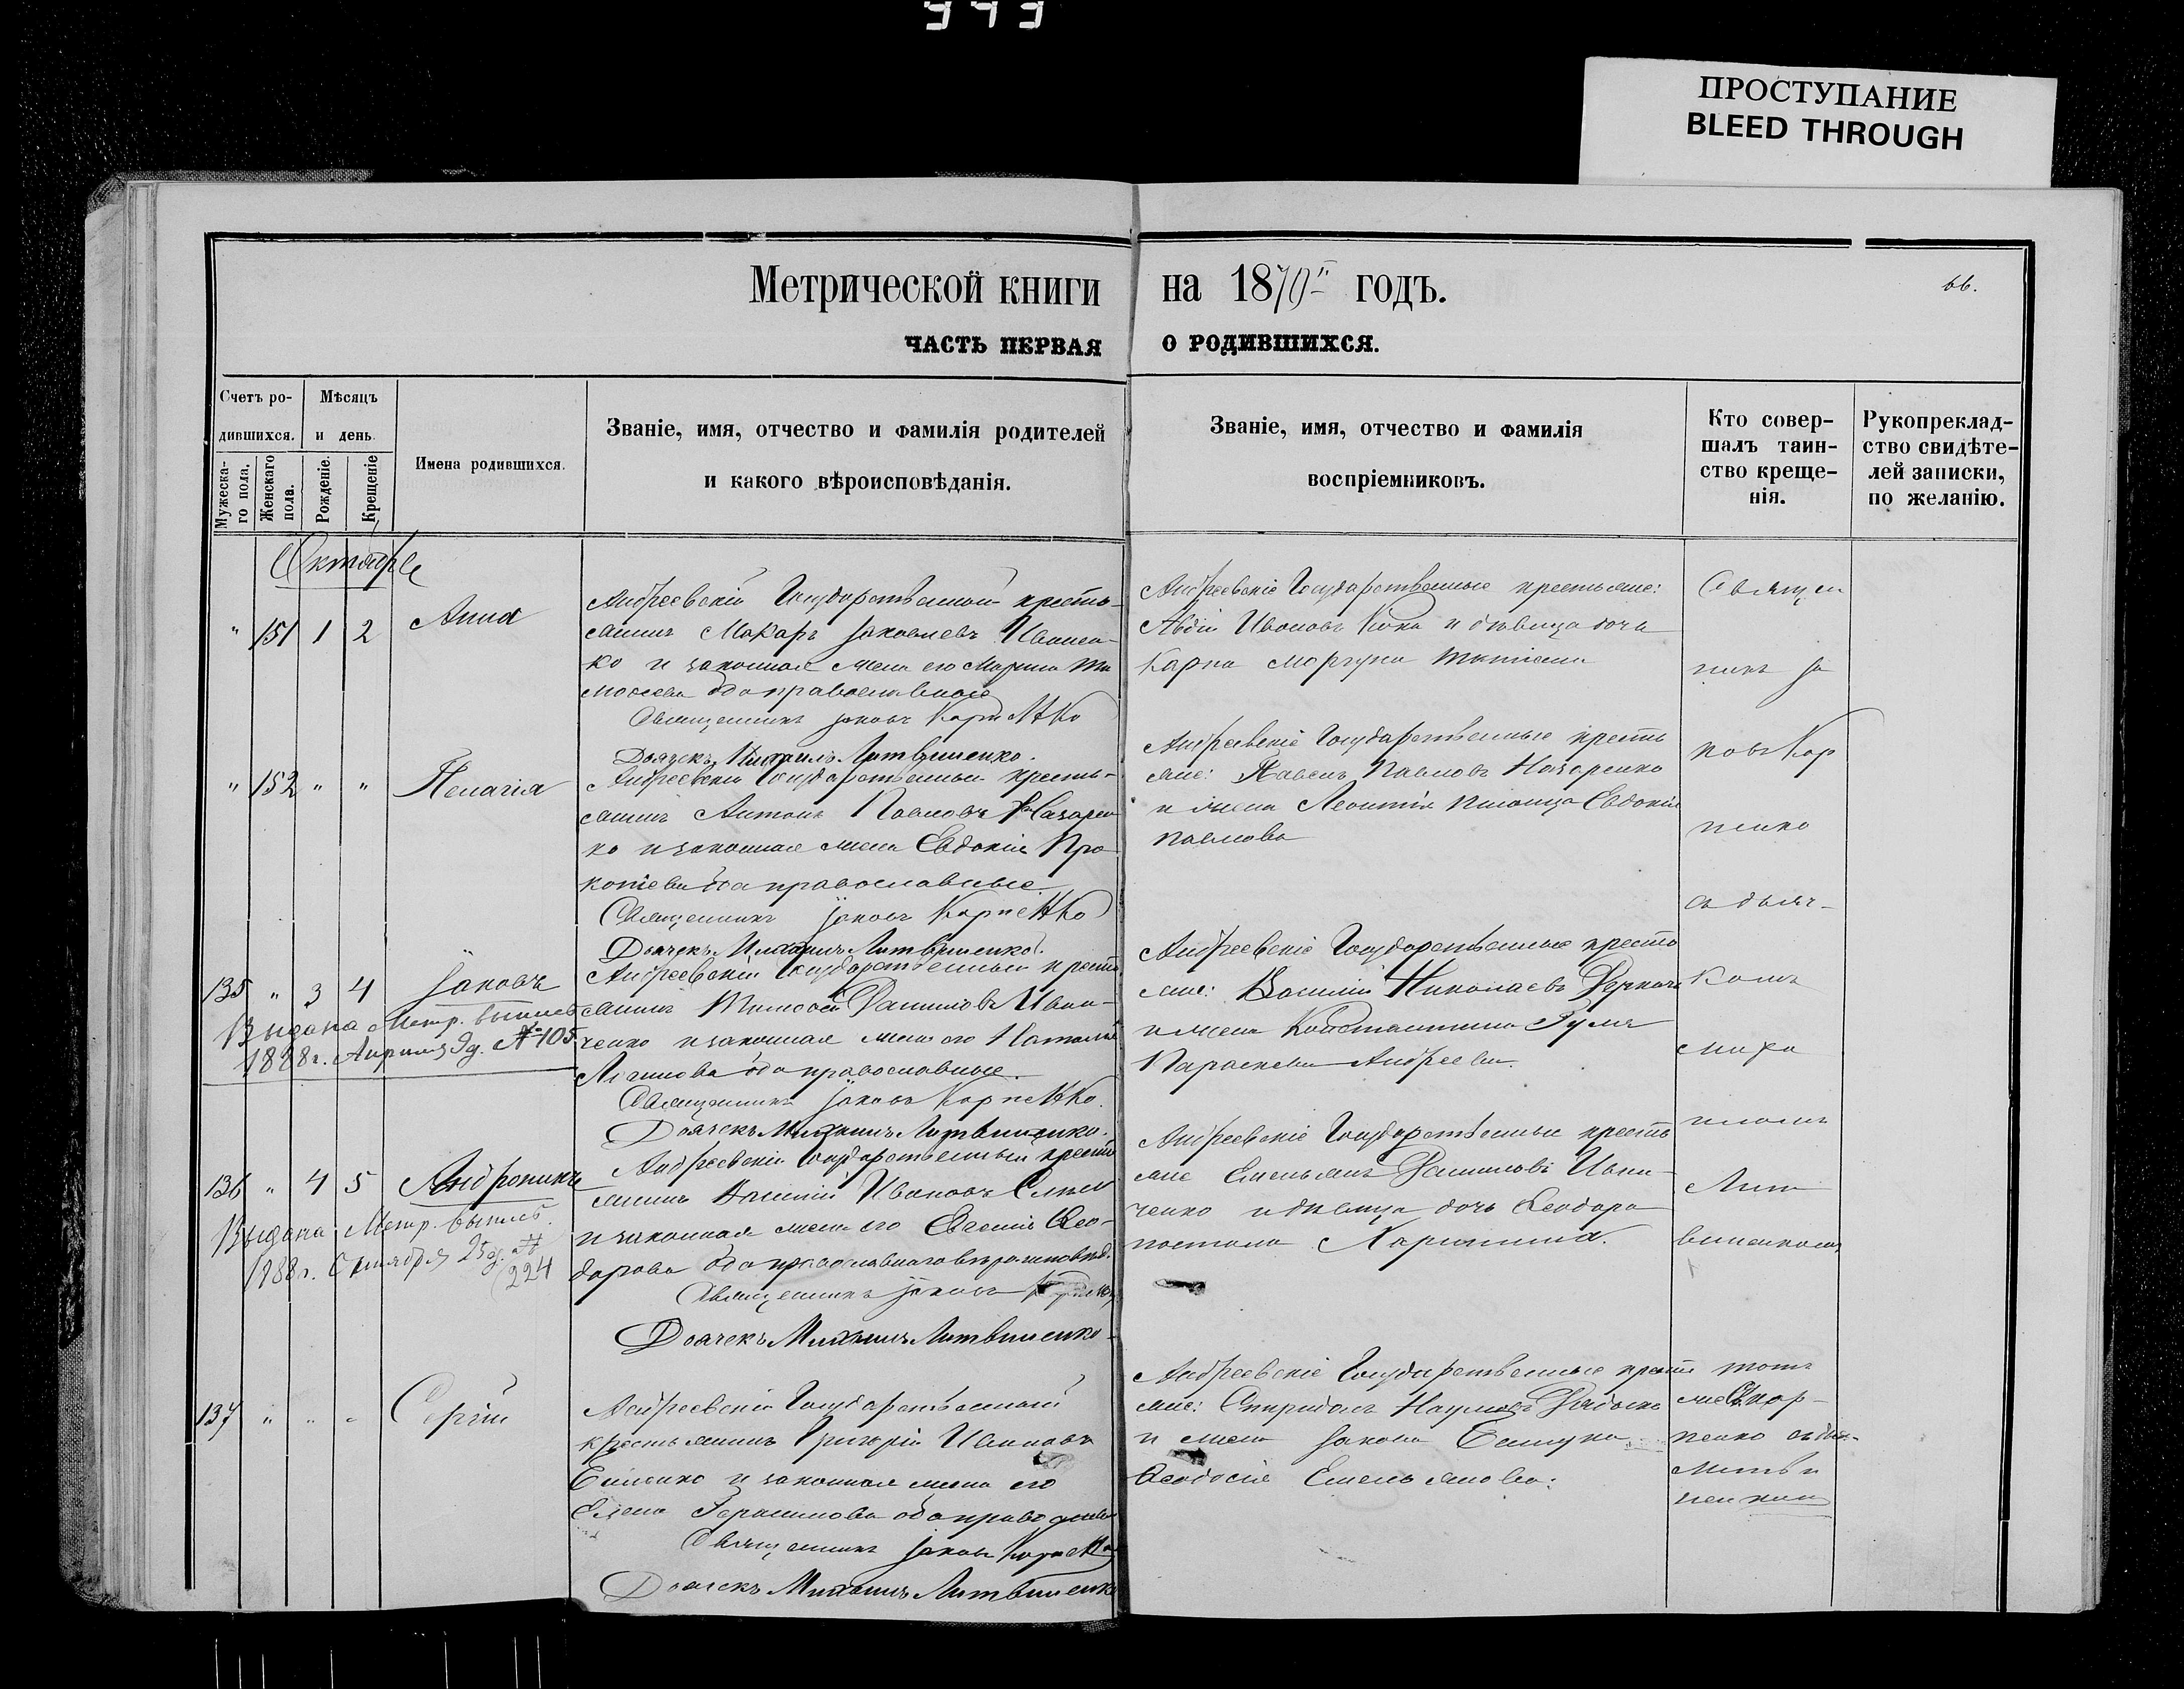 343
ПРОСТУПАНИЕ
BLEED THROUGH
Метрической книги на 1870й годъ.
66.
ЧАСТЬ ПЕРВАЯ О РОДИВШИХСЯ.
Счетъ ро-
дившихся.
Мѣсяцъ
и день.
Мужеска-
го пола.
Женскаго
пола.
Рожденіе.
Крещеніе
Имена родившихся.
Званіе, имя, отчество и фамилія родителей
и какого вѣроисповѣданія.
Званіе, имя, отчество и фамилія
воспріемниковъ.
Кто совер-
шалъ таин-
ство креще-
нія.
Рукоприклад-
ство свидѣте-
лей записки,
по желанію.
Октябрь
" 151 1 2
Анна
Андреевскій Государственный кресть-
янинъ Макаръ Іаковлевъ Иванен-
ко и законная жена его Марина Ти
моѳеева оба православные
Священникъ Іаковъ Карпенко
Дьячекъ Михаилъ Литвиненко.
Андреевскіе Государственные крестьяне:
Авдій Ивановъ и дѣвица дочь
Карпа Моргуна
" 152 " "
Пелагія
Андреевскій Государственный кресть-
янинъ Антонъ Павловъ Назарен
ко и законная жена Евдокія Про
копіева оба православные.
Священникъ Іаковъ Карпенко
Дьячекъ Михаилъ Литвиненко.
Андреевскіе Государственные кресть
яне: Павелъ Павловъ Назаренко
и жена Леонтія Евдокія
Павлова
135 " 3 4
Іаковъ
Выдана Метр. выпись
1888 г. Априля 9 д. № 105
Андреевскій Государственный кресть
янинъ Тимоѳей Даниловъ Иван-
ченко и законная жена его Наталія
Логинова оба православные.
Священникъ Іаковъ Карпенко.
Дьячекъ Михаилъ Литвиненко.
Андреевскіе Государственные кресть
яне: Василій Николаевъ Деркачъ
и жена Константина
Параскева Андреева.
136 " 4 5
Андроникъ
Выдана Метр. выпись.
1888 г. Сентября 25 д. №
224
Андреевскій Государственный кресть
янинъ Василій Ивановъ
и законная жена его Евгенія Ѳео-
дорова оба православнаго вѣроисповѣд.
Священникъ Іаковъ
Дьячекъ Михаилъ Литвиненко
Андреевскіе Государственные кресть
яне Емельянъ Даниловъ Иван-
ченко и дѣвица дочь Ѳеодора
137 " " "
Сергій
Андреевскій Государственный
крестьянинъ Григорій Ивановъ
и законная жена его
Елена Герасимова оба православн
Священникъ Іаковъ Карпенко
Дьячекъ Михаилъ Литвиненко
Андреевскіе Государственные кресть
яне: Спиридонъ Наумовъ
и жена Іакова
Ѳеодосія Емельянова:
Священ
никъ Іа
ковъ Кар
пенко
съ дьяч-
комъ
Миха
иломъ
Лит
виненкомъ
тотъ
же Карп-
пенко съ дьяч-